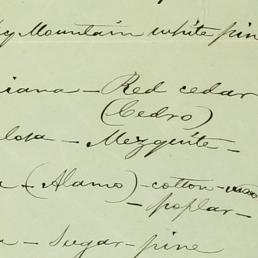 ky Mountain white pin
iana - Red cedar
(Cedro)
losa - Mezquite -
a - (Alamo) - cotton-
- poplar -
a - Sugar-pine